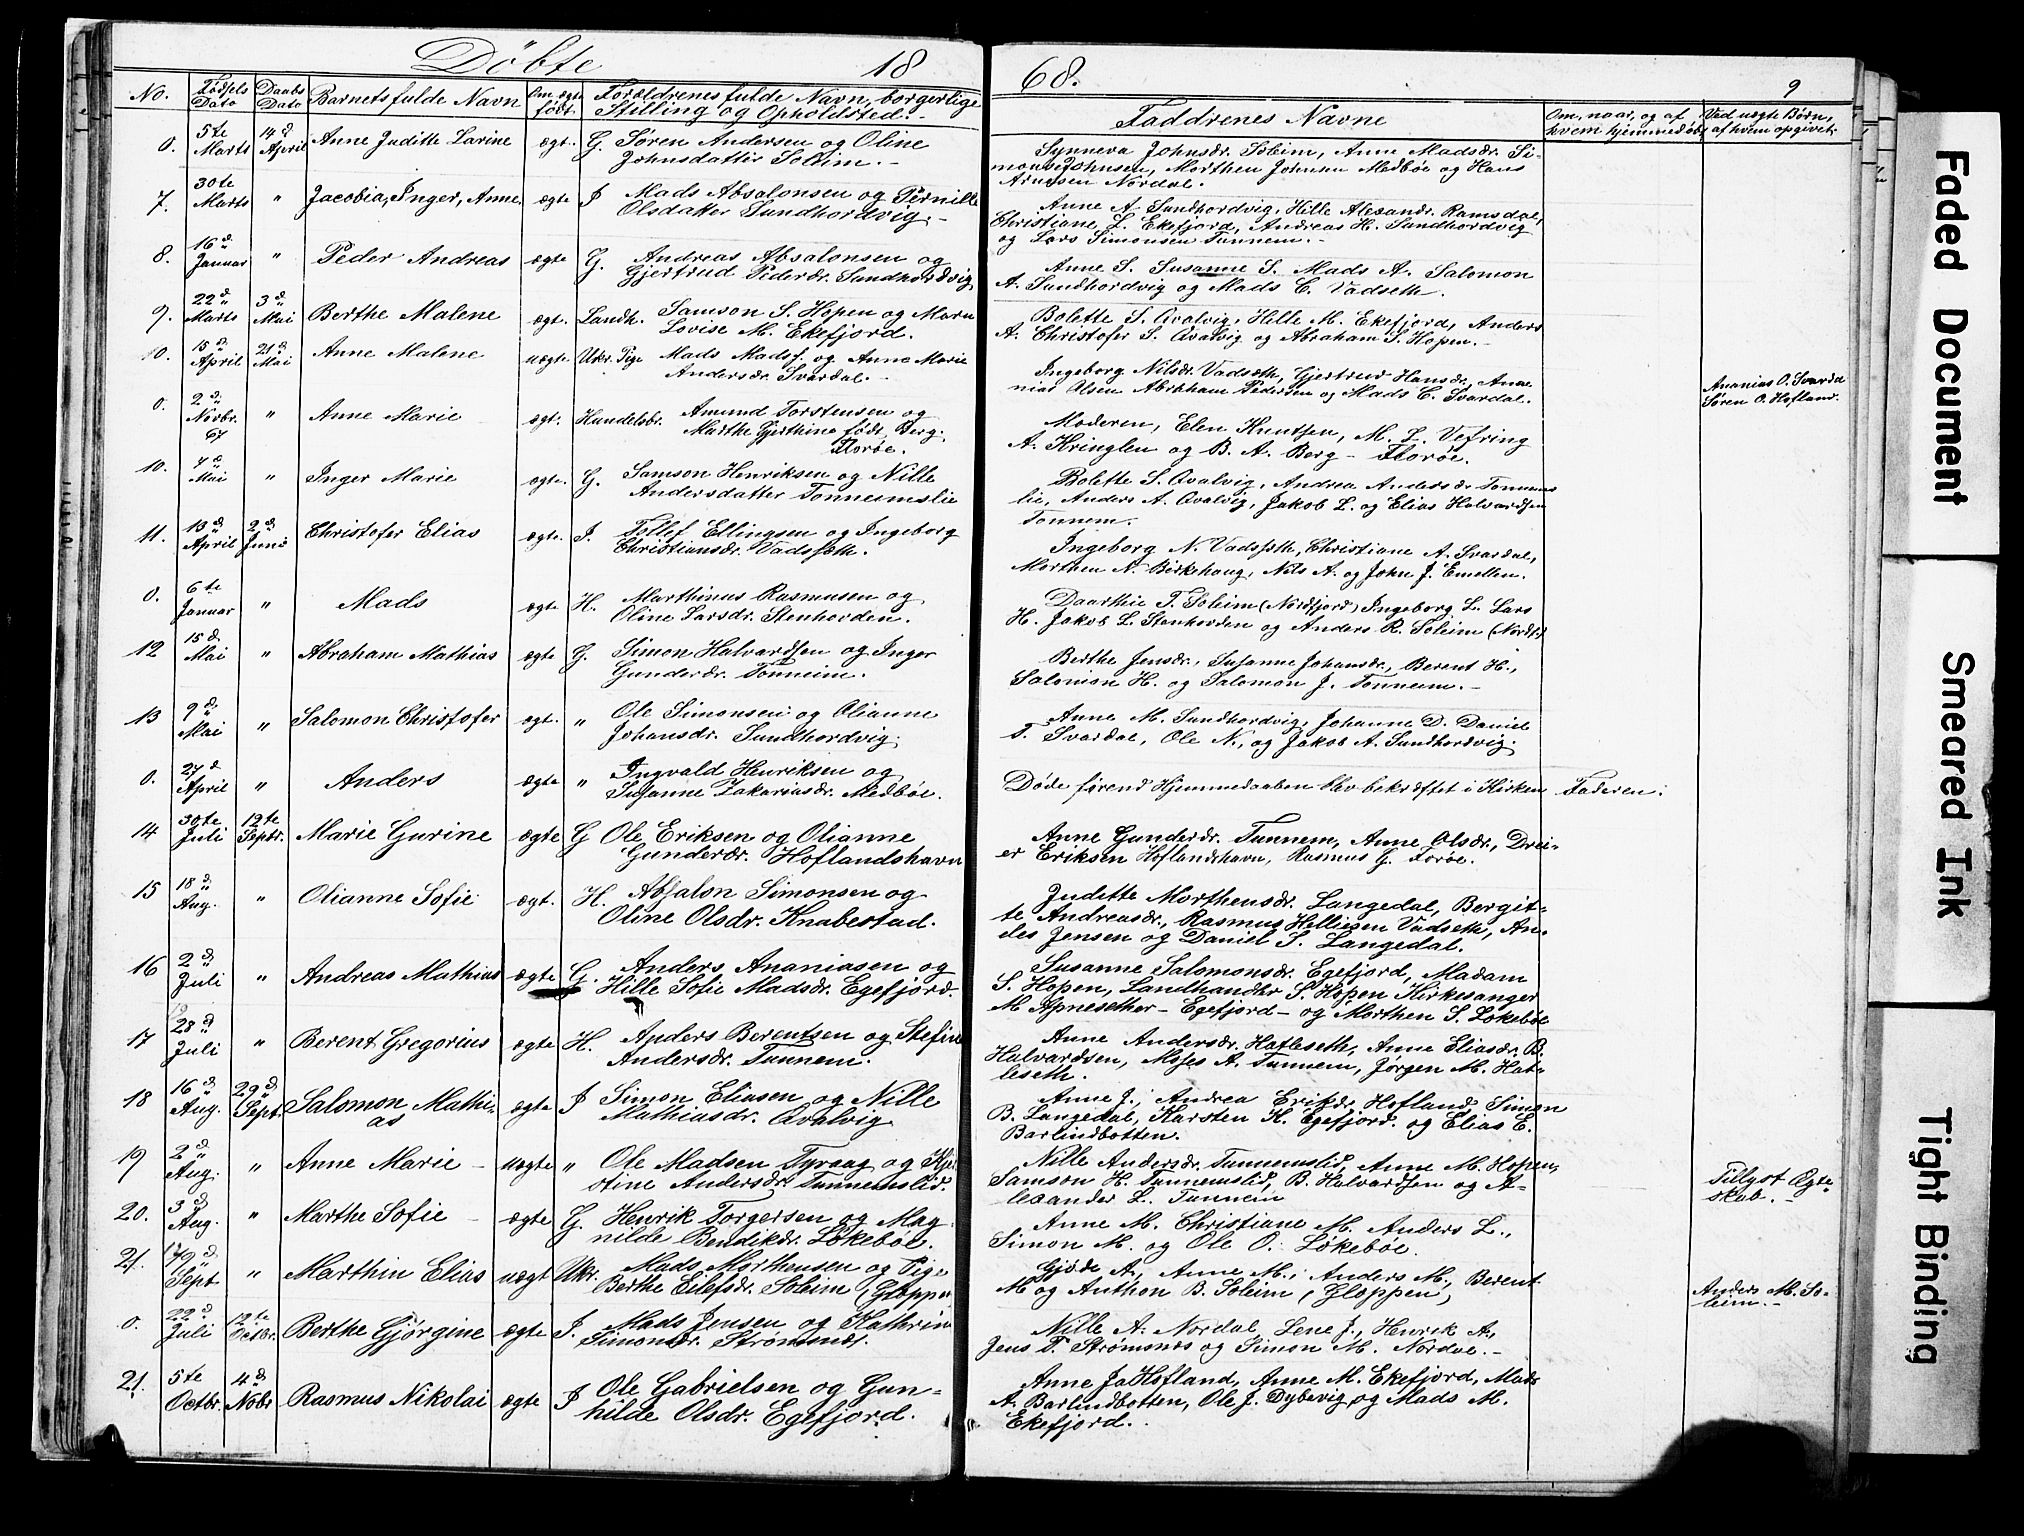 Döbte 18
No. Fødsels Dato Daabs Dato Barnets fulde Navn Om ægte født. Forældrenes fulde Navn, borgerlige Stilling og Opholdsted.
0. 5te Marts 14d April Anne Juditte Larine ægt. G. Søren Andersen og Oline
Johnsdatter Solim.
7. 30te Marts " Jacobia, Inger, Anne. ægte I Mads Absalonsen og Pernille
Olsdatter Sundhordvig.
8. 16d Januar " Peder Andreas ægte G. Andreas Absalonsen og
Gjertrud Pedersdr. Sundhordvig
9. 22d Marts 3d Mai Berthe Malene ægt. Landh. Samson S. Hopen og Maren
Lovise M. Ekefjord.
10. 15d April 21d Mai Anne Malene uægte Ukr. Pige Mads Madss. og Anne Marie
Andersdr. Svardal.
0. 2d Novbr. 67 " Anne Marie ægt. Handelsbr. Amund Torstensen og
Marthe Gjerthine født Berg.
Florøe.
10. 4d Mai " Inger Marie ægte. G. Samson Henriksen og Nille
Andersdatter Tonneimslie
11. 13d April 2d Juni Christofer Elias ægte. I. Tollef Ellingsen og Ingeborg
Christiansdr. Vadsseth.
0. 6te Januar " Mads ægte H. Marthinus Rasmusen og
Oline Larsdr. Stenhovden.
12 15d Mai " Abraham Mathias ægte G. Simon Halvardsen og Inger
Gundersdr. Tonneim.
13 9d Mai " Salomon Christofer ægt. " Ole Simonsen og Olianne
Johansdr. Sundhordvig.
0. 27d April " Anders ægte " Ingvald Henriksen og
Susanne Zakariasdr. Medbøe.
14 30te Juli 12te Septbr. Marie Gurine ægte G Ole Eriksen og Olianne
Gundersdr. Hoflandshavn
15 18d Aug. " Olianne Sofie ægt. H. Absalon Simonsen og
Oline Olsdr. Knabestad.
16 2d Juli " Andreas Mathias ægte G. Anders Ananiasen og
Hille Sofie Madsdr. Egefjord.
17 28d Juli " Berent Gregorius ægte H. Anders Berentsen og Stefine
Andersdr. Tunnem.
18 16d Aug. 29d Sept. Salomon Mathias ægte I Simon Eliasen og Nille
Mathiasdr. Qvalvig
19 2d Aug. " Anne Marie uægte " Ole Madsen Tyraug og Kjerstine Andersdr. Tunnemslid.
20. 3d Aug. " Marthe Sofie ægte G. Henrik Torgersen og Magnilde Bendiksdr. Løkebøe.
21. 19d Sept " Marthin Elias uægt Ukr. Mads Morthensen og Pige
Berthe Eilefsdr. Soleim (Gloppen
0. 22d Juli 12te Octbr. Berthe Gjørgine ægte I. Mads Jensen og Kathrin
Simonsdr. Strømsnæs.
21. 5te Octbr. 4d Nobr Rasmus Nikolai ægte I Ole Gabrielsen og Gunhilde Olsdr. Egefjord.
68. 9
Faddrenes Navne Om, naar, og af hvem hjemmedøbt Ved uægte Børn, af hvem opgivet.
Synneva Johnsdr. Soleim, Anne Madsdr. Simon Johnsen, Morthen Johnsen Medbøe og Hans
Arnesen Nordal.
Anne A. Sundhordvig, Hille Alexandr. Ramsdal,
Christiane L. Ekefjord, Andreas H. Sundhordvig
og Lars Simonsen Tunnem.
Anne S. Susanne S. Mads A. Salomon
A. Sundhordvig og Mads C. Vadseth.
Bolette S. Qvalvig, Hille M. Ekefjord, Anders
A. Christofer S. Qvalvig og Abraham S. Hopen.
Ingeborg Nilsdr. Vadseth, Gjertrud Hansdr., Ananias Olsen Abraham Pedersen og Mads C. Svardal. Ananias O. Svardal
Søren O. Hofland.
Moderen, Elen Knutsen, M. L. Vefring
A. Kringlen og B. A. Berg - Florøe.
Bolette S. Qvalvig, Andrea Andersdr. Tonnemslie, Anders A. Qvalvig, Jakob L. og Elias Halvardsen
Tonnem.
Ingeborg N. Vadsseth, Christiane A. Svardal,
Morthen N. Birkehaug, Nils A. og John J. Emellen.
Daarthie T. Soleim (Nordfjord) Ingeborg L. Lars
H. Jakob L. Stenhovden og Anders R. Soleim (Nordf.)
Berthe Jensdr., Susanne Johansdr., Berent H.,
Salomon H. og Salomon J. Tonneim.
Anne M. Sundhordvig, Johanne D. Daniel
T. Svardal, Ole N., og Jakob A. Sundhordvig.
Døde førend Hjemmedaaben blev bekræftet i Kirken Faderen.
Anne Gundersdr. Tunnem, Anne Olsdr., Dreier Eriksen Hoflandshavn, Rasmus G. Florøe.
Juditte Morthensdr. Langedal, Bergitte Andreasdr., Rasmus Helliesen Vadseth, Andes Jensen og Daniel S. Langedal.
Susanne Salomonsdr. Egefjord, Madam
S. Hopen, Landhandlr S. Hopen Kirkesanger
M. Apnesether - Egefjord - og Morthen S. Løkebøe
Anne Andersdr. Hatleseth, Anne Eliasdr. B.
Halvardsen, Moses A. Tunnem, Jørgen M. Hatleseth.
Anne J., Andrea Eriksdr. Hofland, Simon
B. Langedal, Karsten K. Egefjord. og Elias E.
Barlindbotten.
Nille Andersdr. Tunnemslid, Anne M. Hopen,
Samson H. Tunnemslid, B. Halvardsen og Alexander L. Tunnem Tillyst Ægteskab.
Anne M. Christiane M. Anders L.,
Simon M. og Ole O. Løkebøe.
Gjøde A., Anne M., Anders M., Berent
M. og Anthon B. Soleim, (Gloppen) Anders M. Soleim.
Nille A. Nordal, Lene J., Henrik A.,
Jens T. Strømsnæs og Simon M. Nordal.
Anne Ja Hofland, Anne M. Ekefjord, Mads
A. Barlindbotten, Ole J. Dybevig og Mads M.
Ekefjord.
Faded Document
Smeared Ink
Tight Binding